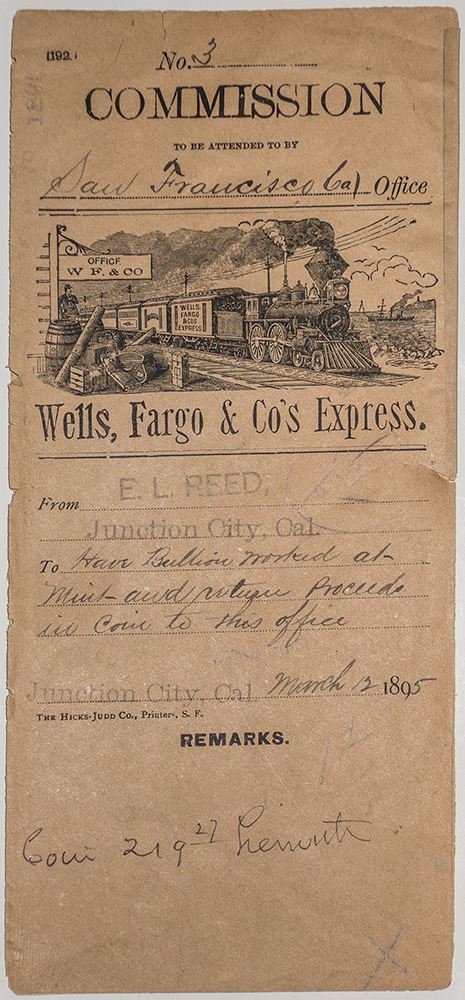 1192.
No. 3
COMMISSION
TO BE ATTENDED TO BY
San Francisco Cal Office
OFFICE
W. F. & CO
WELLS
FARGO
& COS
EXPRESS
Wells, Fargo & Co's Express.
From E. L. REED,
Junction City, Cal.
To Have Bullion worked at
Mint and return Proceeds
in Coin to this office
Junction City, Cal. March 12 1895
THE HICKS-JUDD CO., Printers, S. F.
REMARKS.
Coin 219 27 herewith